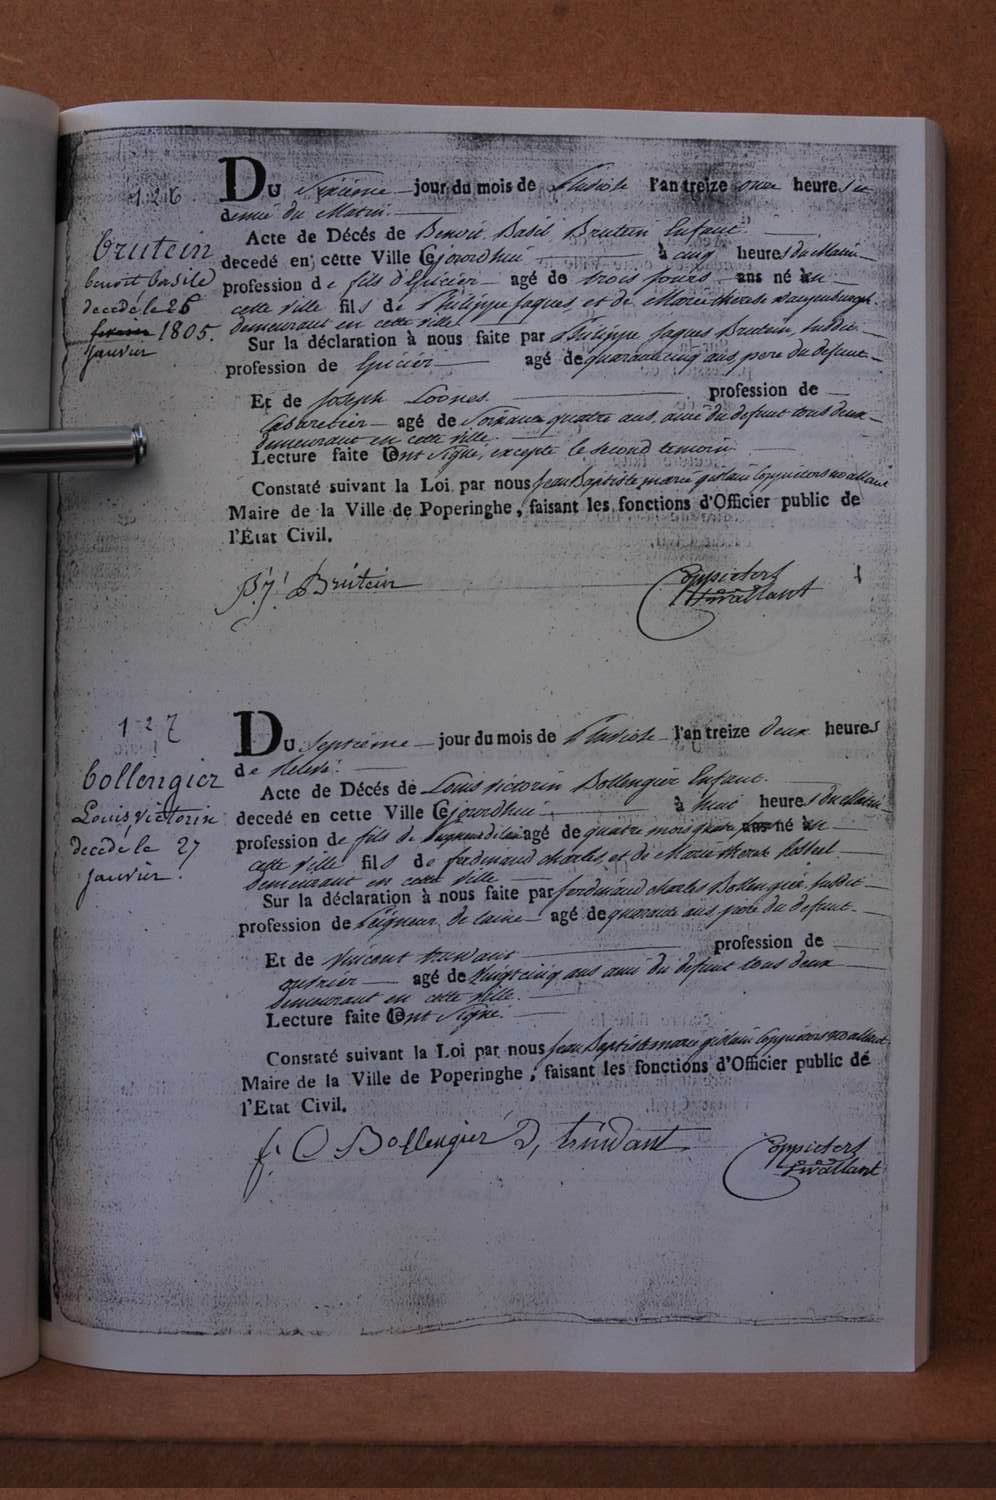 126
brutein
benoit basile
decedé le 26
fevrier 1805.
janvier
Du Sixieme jour du mois de Pluviose l'an treize onze heures et
demie du Matin.
Acte de Décés de Benoit Basil Brutein Enfant.
decedé en cette Ville Cejourdhui à cinq heures du Matin
profession de fils d'Epicier agé de trois jours ans né en
cette ville fils de Philippe Jaques, et de Marie therese
demeurant en cette ville
Sur la déclaration à nous faite par Philippe Jaques Brutein, susdit
profession de Epicier agé de quarante cinq ans, pere du defunt
Et de Joseph Loones profession de
Cabaretier agé de Soixante quatre ans, ami du defunt tous deux
demeurant en cette ville.
Lecture faite Cont Signé, excepté le second temoin
Constaté suivant la Loi par nous Jean Baptiste marie gislain Coppieters
Maire de la Ville de Poperinghe, faisant les fonctions d'Officier public de
l'État Civil.
Brutein
Coppieters
127
bollengier
Louis, victorin
decede le 27
janvier.
Du Septième jour du mois de Pluviose l'an treize deux heures
de Relevé.
Acte de Décés de Louis victorin Bollengier Enfant.
decedé en cette Ville Cejourdhui à huit heures du Matin
profession de fils de agé de quatre mois ans né en
cette ville fils de ferdinand charles, et de Marie therese
demeurant en cette ville
Sur la déclaration à nous faite par ferdinand charles Bollengier susdit
profession de Peigneur de laine agé de quarante ans pere du defunt.
Et de vincent profession de
ouvrier agé de vingt cinq ans ami du defunt tous deux
demeurant en cette ville.
Lecture faite Cont Signé.
Constaté suivant la Loi par nous Jean Baptiste marie gislain Coppieters
Maire de la Ville de Poperinghe, faisant les fonctions d'Officier public de
l'Etat Civil.
f. C Bollengier
Coppieters